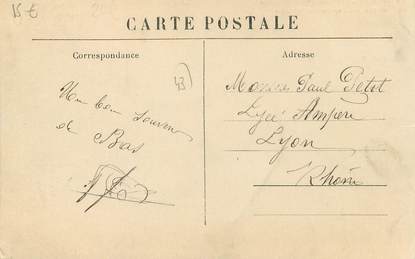 15 €
CARTE POSTALE
Correspondance
Adresse
43
Un bon souvenir
de Bas
Monsieur Paul Petit
Lycée Ampère
Lyon
Rhône